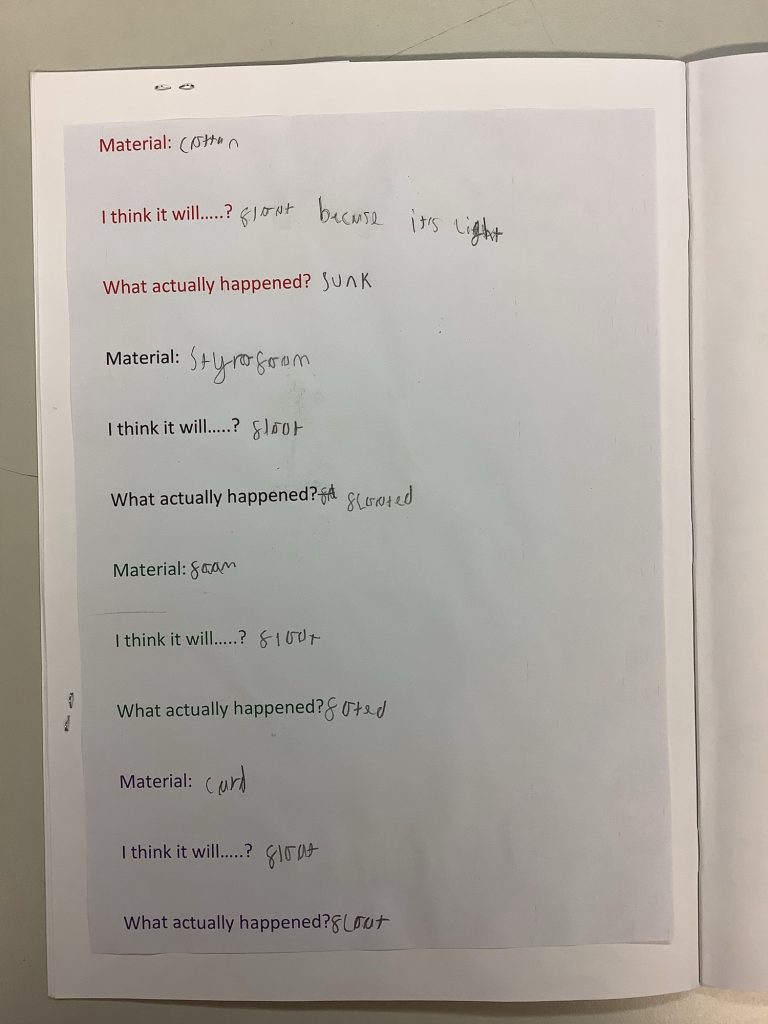 Material: cotton
I think it will.....? float becuse it's light
What actually happened? sunk
Material: Styrofoam
I think it will.....? float
What actually happened? floated
Material: foam
I think it will.....? float
What actually happened? foted
Material: card
I think it will.....? float
What actually happened? float